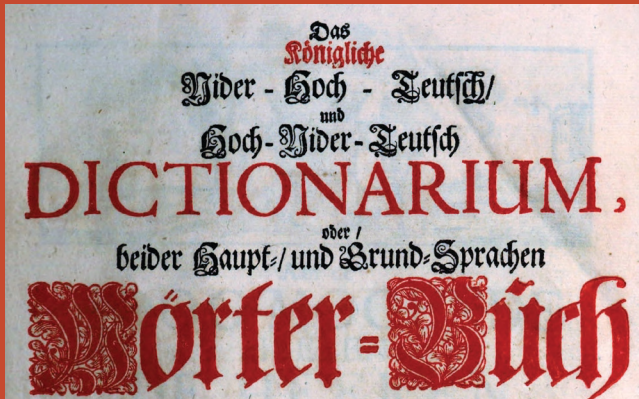 Das
Königliche
Nider - Hoch - Teutsch/
und
Hoch-Nider-Teutsch
DICTIONARIUM,
oder/
beider Haupt-/ und Grund-Sprachen
Wörter-Büch